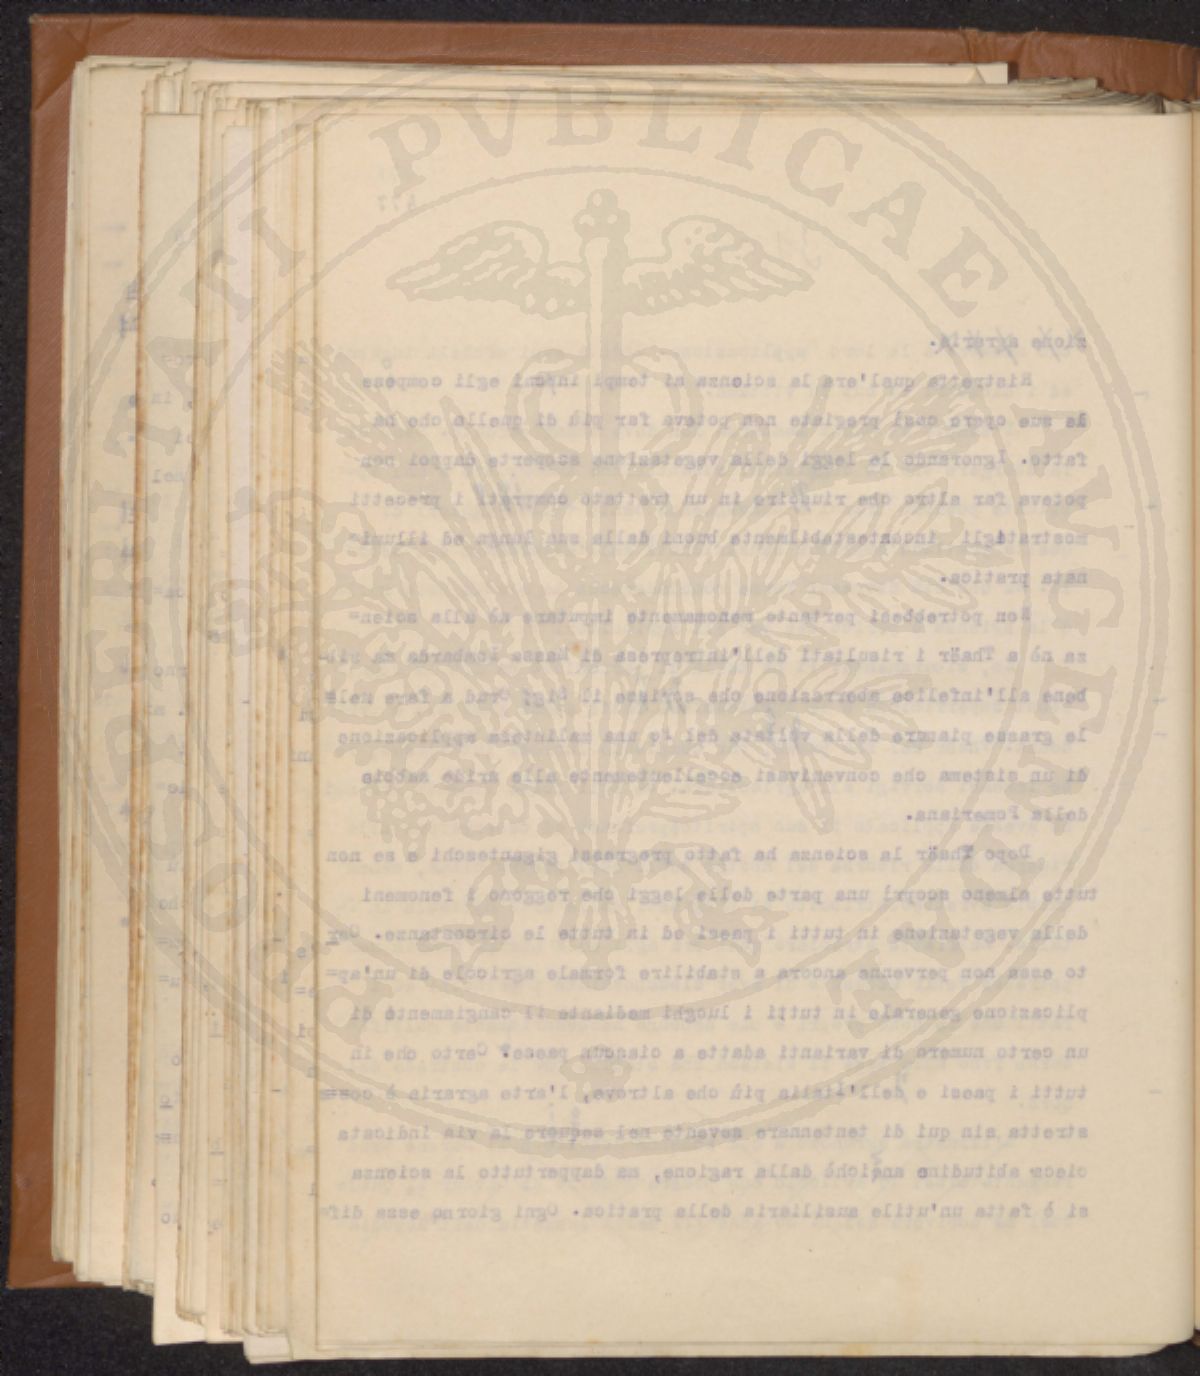 477
zione agraria.
Ristretta qual'era la scienza ai tempi in cui egli compose
le sue opere così pregiate non poteva far più di quello che ha
fatto. Ignorando le leggi della vegetazione scoperte dappoi non
poteva far altro che riunire in un trattato compreti i precetti
mostratigli incontestabilmente buoni dalla sua lunga ed illumi=
nata pratica.
Non potrebbesi pertanto menomamente imputare nè alla scien=
za nè a Thaër i risultati dell'intrapresa di Massa Lombarda ma sib=
bene all'infelice aberrazione che spinse il Sig; Crud a fare nel=
le grasse pianure della vallata del Po una malintesa applicazione
di un sistema che convenivasi eccellentemente alle aride sabbie
della Pomeriana.
Dopo Thaër la scienza ha fatto progressi giganteschi e se non
tutte almeno scoprì una parte delle leggi che reggono i fenomeni
della vegetazione in tutti i paesi ed in tutte le circostanze. Cer
to essa non pervenne ancora a stabilire formale agricole di un'ap=
plicazione generale in tutti i luoghi mediante il cangiamento di
un certo numero di varianti adatte a ciascun paese. Certo che in
tutti i paesi e dell'Italia più che altrove, l'arte agraria è cos=
stretta sin qui di tentennare sovente nel seguere la via indicata
cieca abitudine anzichè dalla ragione, ma dappertutto la scienza
si è fatta un'utile ausiliaria della pratica. Ogni giorno essa dif=
PROSPERITATI PVBLICAE AVGENDAE